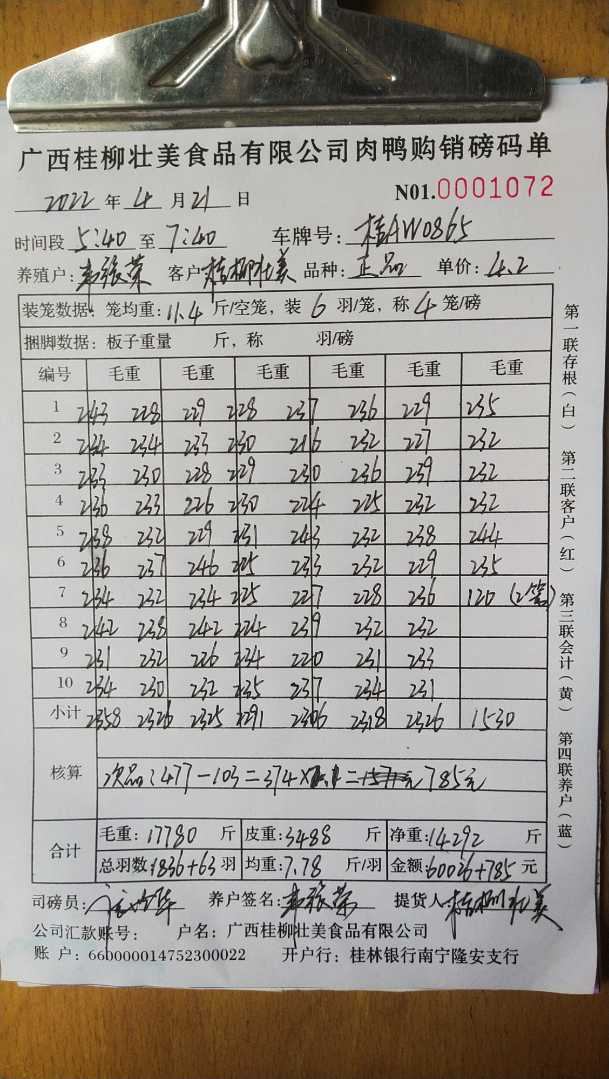 广西桂柳壮美食品有限公司肉鸭购销磅码单
2022 年 4 月 21 日 N01.0001072
时间段 5:40 至 7:40 车牌号: 桂AW0865
养殖户: 韦振荣 客户 桂柳壮美 品种: 正品 单价: 4.2
装笼数据: 笼均重: 11.4 斤/空笼, 装 6 羽/笼, 称 4 笼/磅
捆脚数据: 板子重量 斤, 称 羽/磅
编号 毛重 毛重 毛重 毛重 毛重
1 243 228 229 228 237 236 229 235
2 234 234 233 230 216 232 227 232
3 233 230 228 229 230 236 239 232
4 236 233 226 230 224 225 232 232
5 238 232 229 231 243 232 238 244
6 236 237 246 225 233 232 229 235
7 234 232 234 225 227 228 236 120 (2笼)
8 242 238 242 224 239 232 232
9 231 232 226 234 220 231 233
10 234 230 232 235 237 234 231
小计 2358 2326 2325 2291 2306 2318 2326 1530
核算 次品:477-103=374× = 785元
合计 毛重: 17780 斤 皮重: 3488 斤 净重: 14292 斤
总羽数 1836+63 羽 均重: 7.78 斤/羽 金额: 60026+785 元
司磅员: 养户签名: 韦振荣 提货人 桂柳壮美
公司汇款账号: 户名: 广西桂柳壮美食品有限公司
账 户: 660000014752300022 开户行: 桂林银行南宁隆安支行
第一联存根(白) 第二联客户(红) 第三联会计(黄) 第四联养户(蓝)